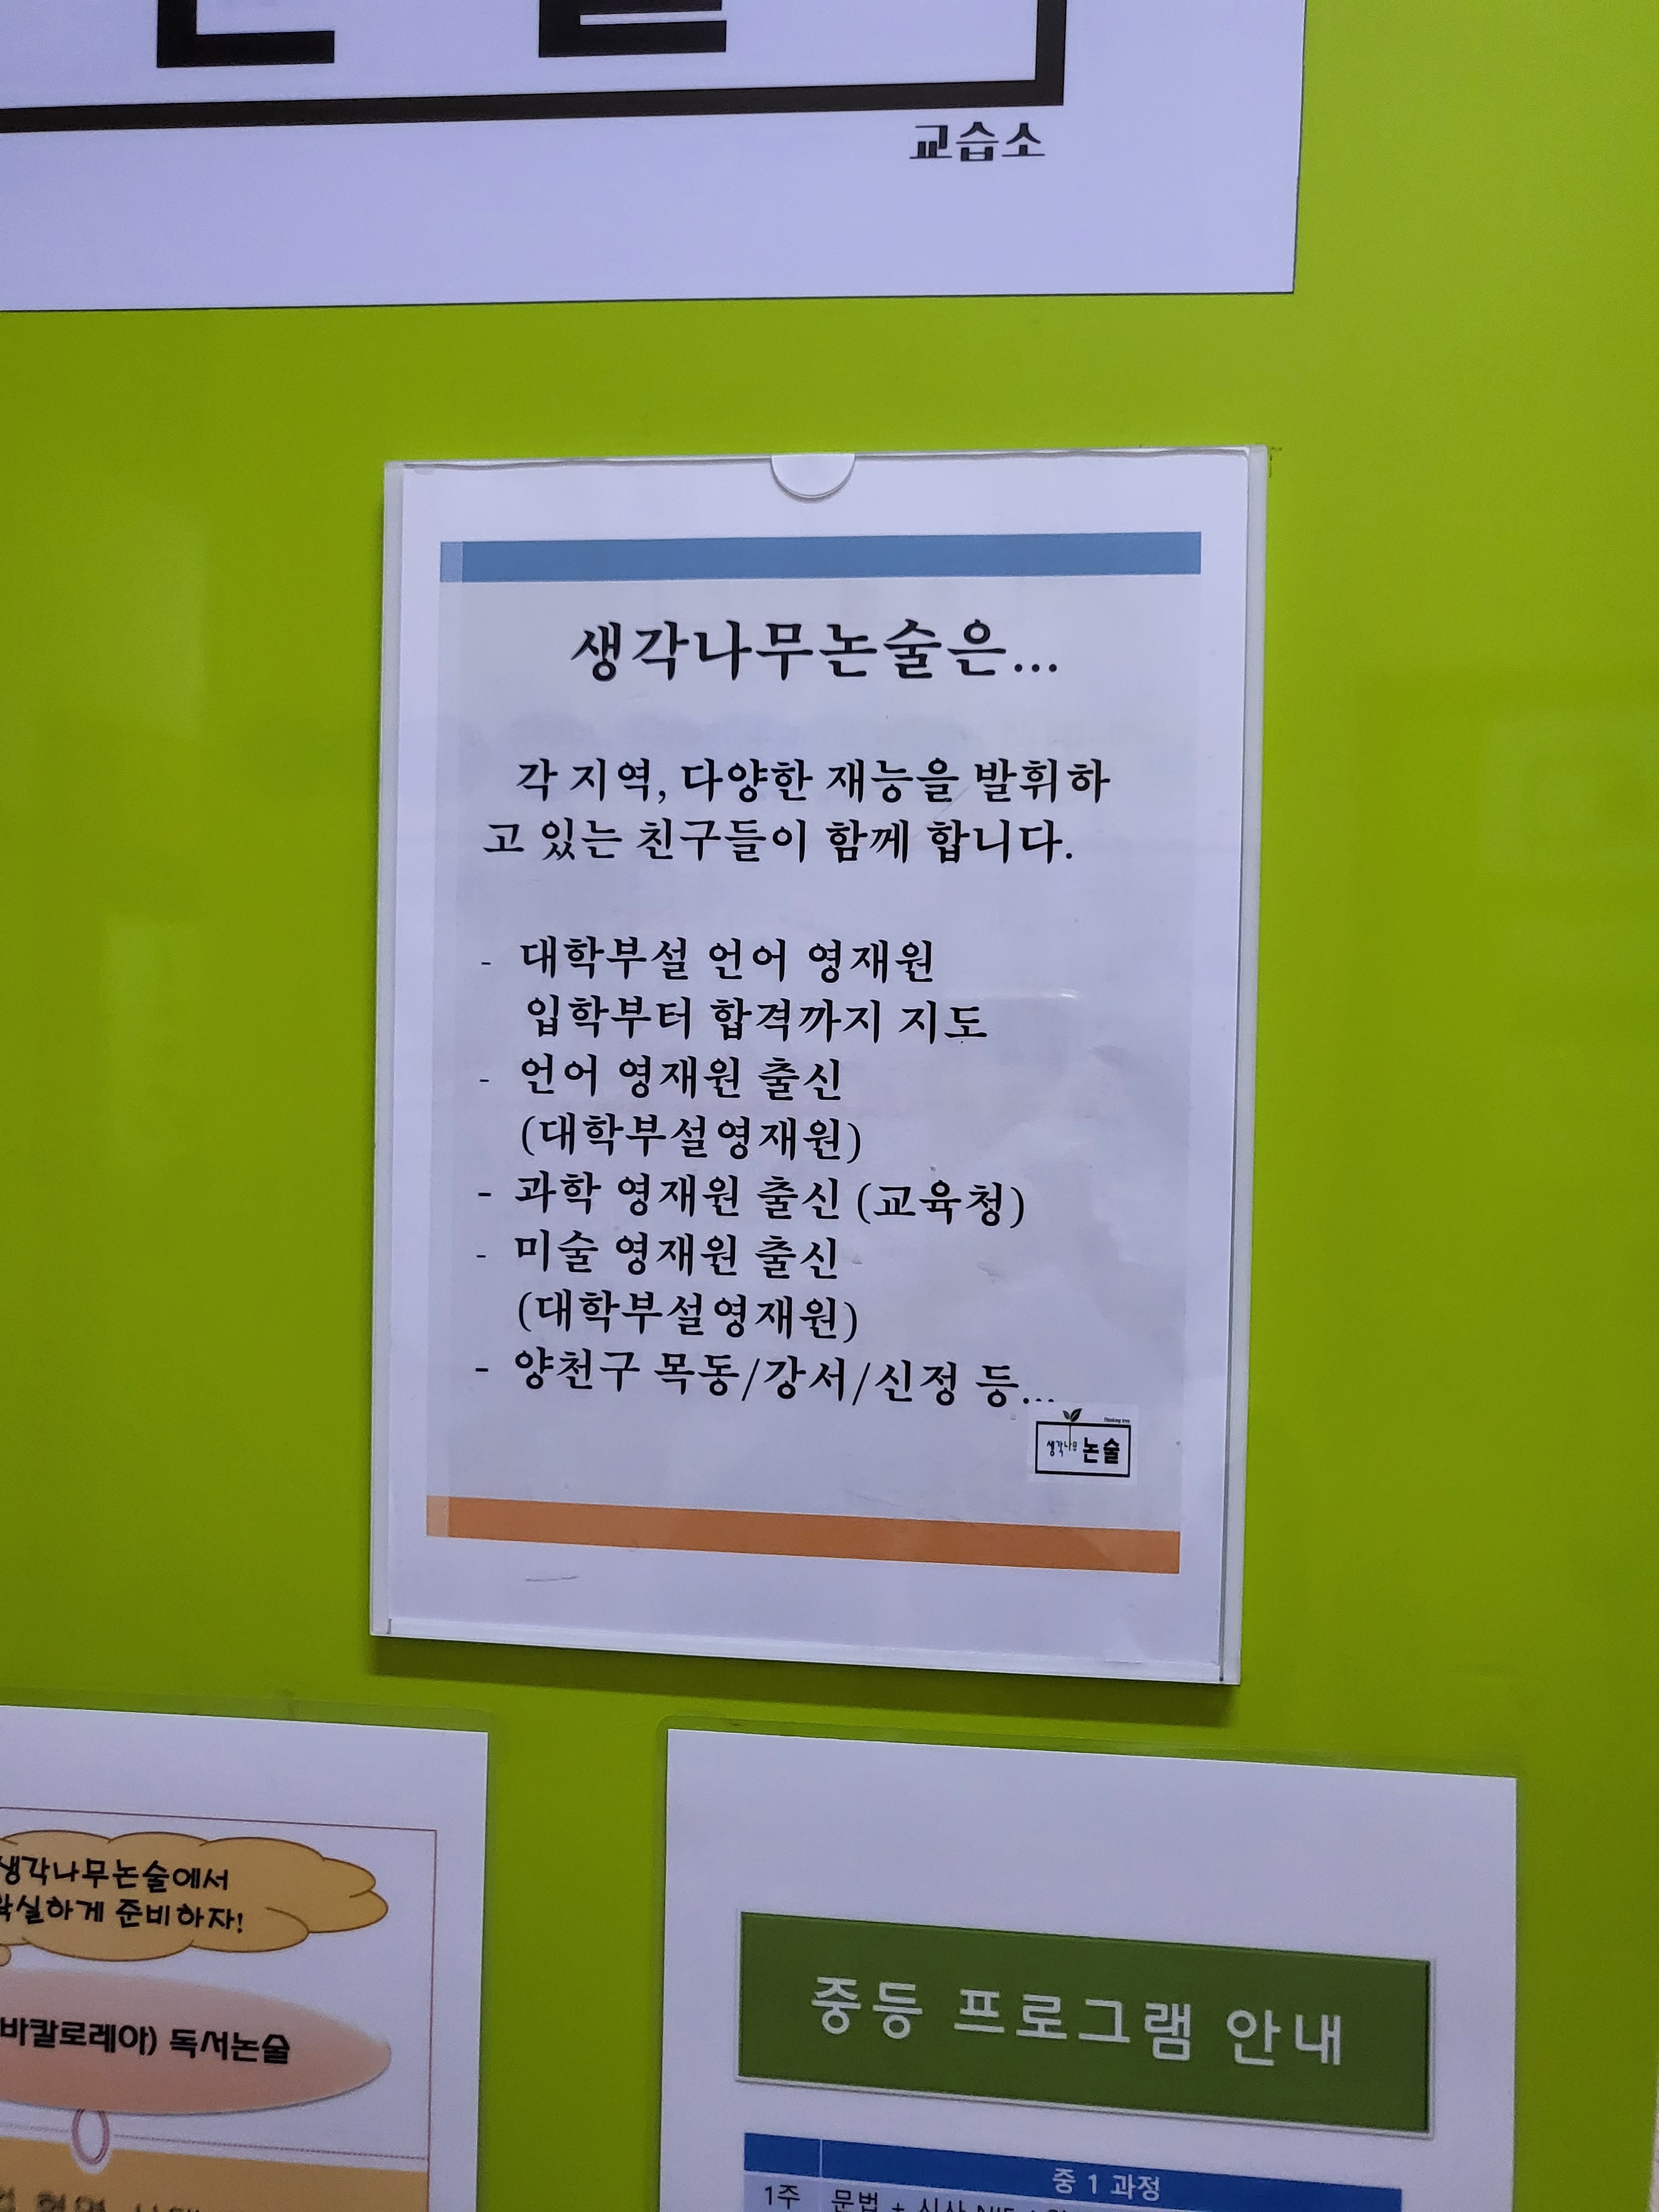 교습소
생각나무논술은...
각 지역, 다양한 재능을 발휘하
고 있는 친구들이 함께 합니다.
- 대학부설 언어 영재원
입학부터 합격까지 지도
- 언어 영재원 출신
(대학부설영재원)
- 과학 영재원 출신 (교육청)
- 미술 영재원 출신
(대학부설영재원)
- 양천구 목동/강서/신정 등...
Thinking tree
생각나무 논술
생각나무논술에서
확실하게 준비하자!
바칼로레아) 독서논술
중등 프로그램 안내
중 1 과정
1주 문법 + 시사 NIE